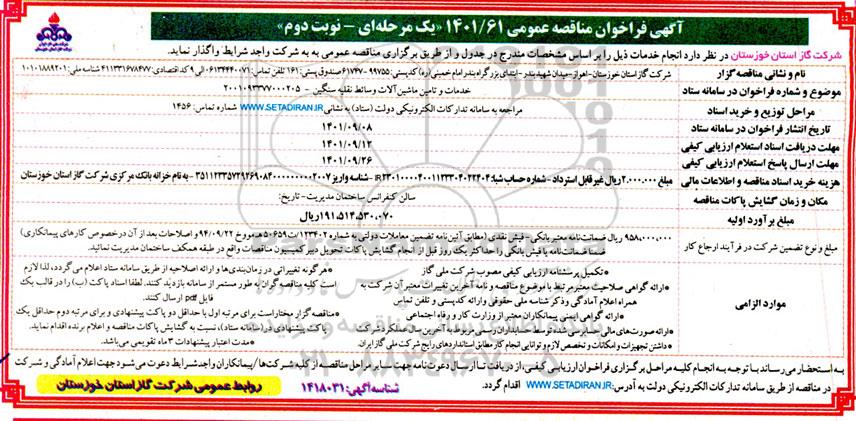 آگهی فراخوان مناقصه عمومی ۱۴۰۱/۶۱ «یک مرحله‌ای - نوبت دوم»
شرکت گاز استان خوزستان در نظر دارد انجام خدمات ذیل را بر اساس مشخصات مندرج در جدول و از طریق برگزاری مناقصه عمومی به به شرکت واجد شرایط واگذار نماید.
نام و نشانی مناقصه گزار
شرکت گاز استان خوزستان - اهواز - میدان شهید بندر - ابتدای بزرگراه بندر امام خمینی (ره) کد پستی: ۹۹۷۵۵-۶۱۷۴۷ صندوق پستی: ۱۶۱ تلفن تماس: ۰۶۱۳۴۴۴۰۰۷۱ الی ۹ کد اقتصادی: ۴۱۱۳۳۱۶۷۸۴۷۷ شناسه ملی: ۱۰۱۰۱۸۸۹۲۰۱
موضوع و شماره فراخوان در سامانه ستاد
خدمات و تامین ماشین آلات وسائط نقلیه سنگین - ۲۰۰۱۰۹۳۳۷۷۰۰۰۲۰۵
مراحل توزیع و خرید اسناد
مراجعه به سامانه تدارکات الکترونیکی دولت (ستاد) به نشانی WWW.SETADIRAN.IR شماره تماس: ۱۴۵۶
تاریخ انتشار فراخوان در سامانه ستاد
۱۴۰۱/۰۹/۰۸
مهلت دریافت اسناد استعلام ارزیابی کیفی
۱۴۰۱/۰۹/۱۲
مهلت ارسال پاسخ استعلام ارزیابی کیفی
۱۴۰۱/۰۹/۲۶
هزینه خرید اسناد مناقصه و اطلاعات مالی
مبلغ ۲.۰۰۰.۰۰۰ ریال غیر قابل استرداد - شماره حساب شبا: - شناسه واریز - به نام خزانه بانک مرکزی شرکت گاز استان خوزستان
مکان و زمان گشایش پاکات مناقصه
سالن کنفرانس ساختمان مدیریت - تاریخ:
مبلغ برآورد اولیه
۱۹۱.۵۱۴.۵۳۰.۰۷۰ ریال
مبلغ و نوع تضمین شرکت در فرآیند ارجاع کار
۹.۵۸۰.۰۰۰.۰۰۰ ریال ضمانت نامه معتبر بانکی - فیش نقدی (مطابق آئین نامه تضمین معاملات دولتی به شماره ۱۲۳۴۰۲/ت۵۰۶۵۹هـ مورخ ۹۴/۰۹/۲۲ و اصلاحات بعد از آن در خصوص کارهای پیمانکاری)
ضمنا ضمانت نامه یا فیش بانکی را حداکثر یک روز قبل از انجام گشایش پاکات تحویل دبیر کمیسیون مناقصات واقع در طبقه همکف ساختمان مدیریت نمائید.
موارد الزامی
•تکمیل پرسشنامه ارزیابی کیفی مصوب شرکت ملی گاز
•ارائه گواهی صلاحیت معتبر مرتبط با موضوع مناقصه و نامه آخرین تغییرات معتبر آن شرکت به
همراه اعلام آمادگی و ذکر شناسه ملی حقوقی و ارائه کد پستی و تلفن تماس
•ارائه گواهی ایمنی پیمانکاران معتبر از وزارت کار و رفاه اجتماعی
•ارائه صورت های مالی حسابرسی شده توسط حسابداران رسمی مربوط به آخرین سال عملکرد شرکت
•داشتن تجهیزات و امکانات و تخصص لازم و توانایی انجام کار مطابق استانداردهای رایج شرکت ملی گاز ایران.
•هر گونه تغییراتی در زمان بندی ها و ارائه اصلاحیه از طریق سامانه ستاد اعلام می گردد، لذا لازم
است کلیه مناقصه گران به طور مستمر از سامانه بازدید کنند. لطفا اسناد پاکت (ب) را در قالب یک
فایل pdf ارسال کنند.
•مناقصه گزار مختار است برای مرتبه اول با حداقل دو پاکت پیشنهادی و برای مرتبه دوم حداقل یک
پاکت پیشنهادی در (سامانه ستاد)، نسبت به گشایش پاکات مناقصه و اعلام برنده اقدام نماید.
•مدت اعتبار پیشنهادات ۳ ماه تقویمی می باشد.
به استحضار می رساند با توجه به انجام کلیه مراحل برگزاری فراخوان ارزیابی کیفی، از دریافت تا ارسال دعوت نامه جهت سایر مراحل مناقصه از کلیه شرکت ها / پیمانکاران واجد شرایط دعوت می شود جهت اعلام آمادگی و شرکت
در مناقصه از طریق سامانه تدارکات الکترونیکی دولت به آدرس: WWW.SETADIRAN.IR اقدام گردد.
شناسه آگهی: ۱۴۱۸۰۳۱
روابط عمومی شرکت گاز استان خوزستان